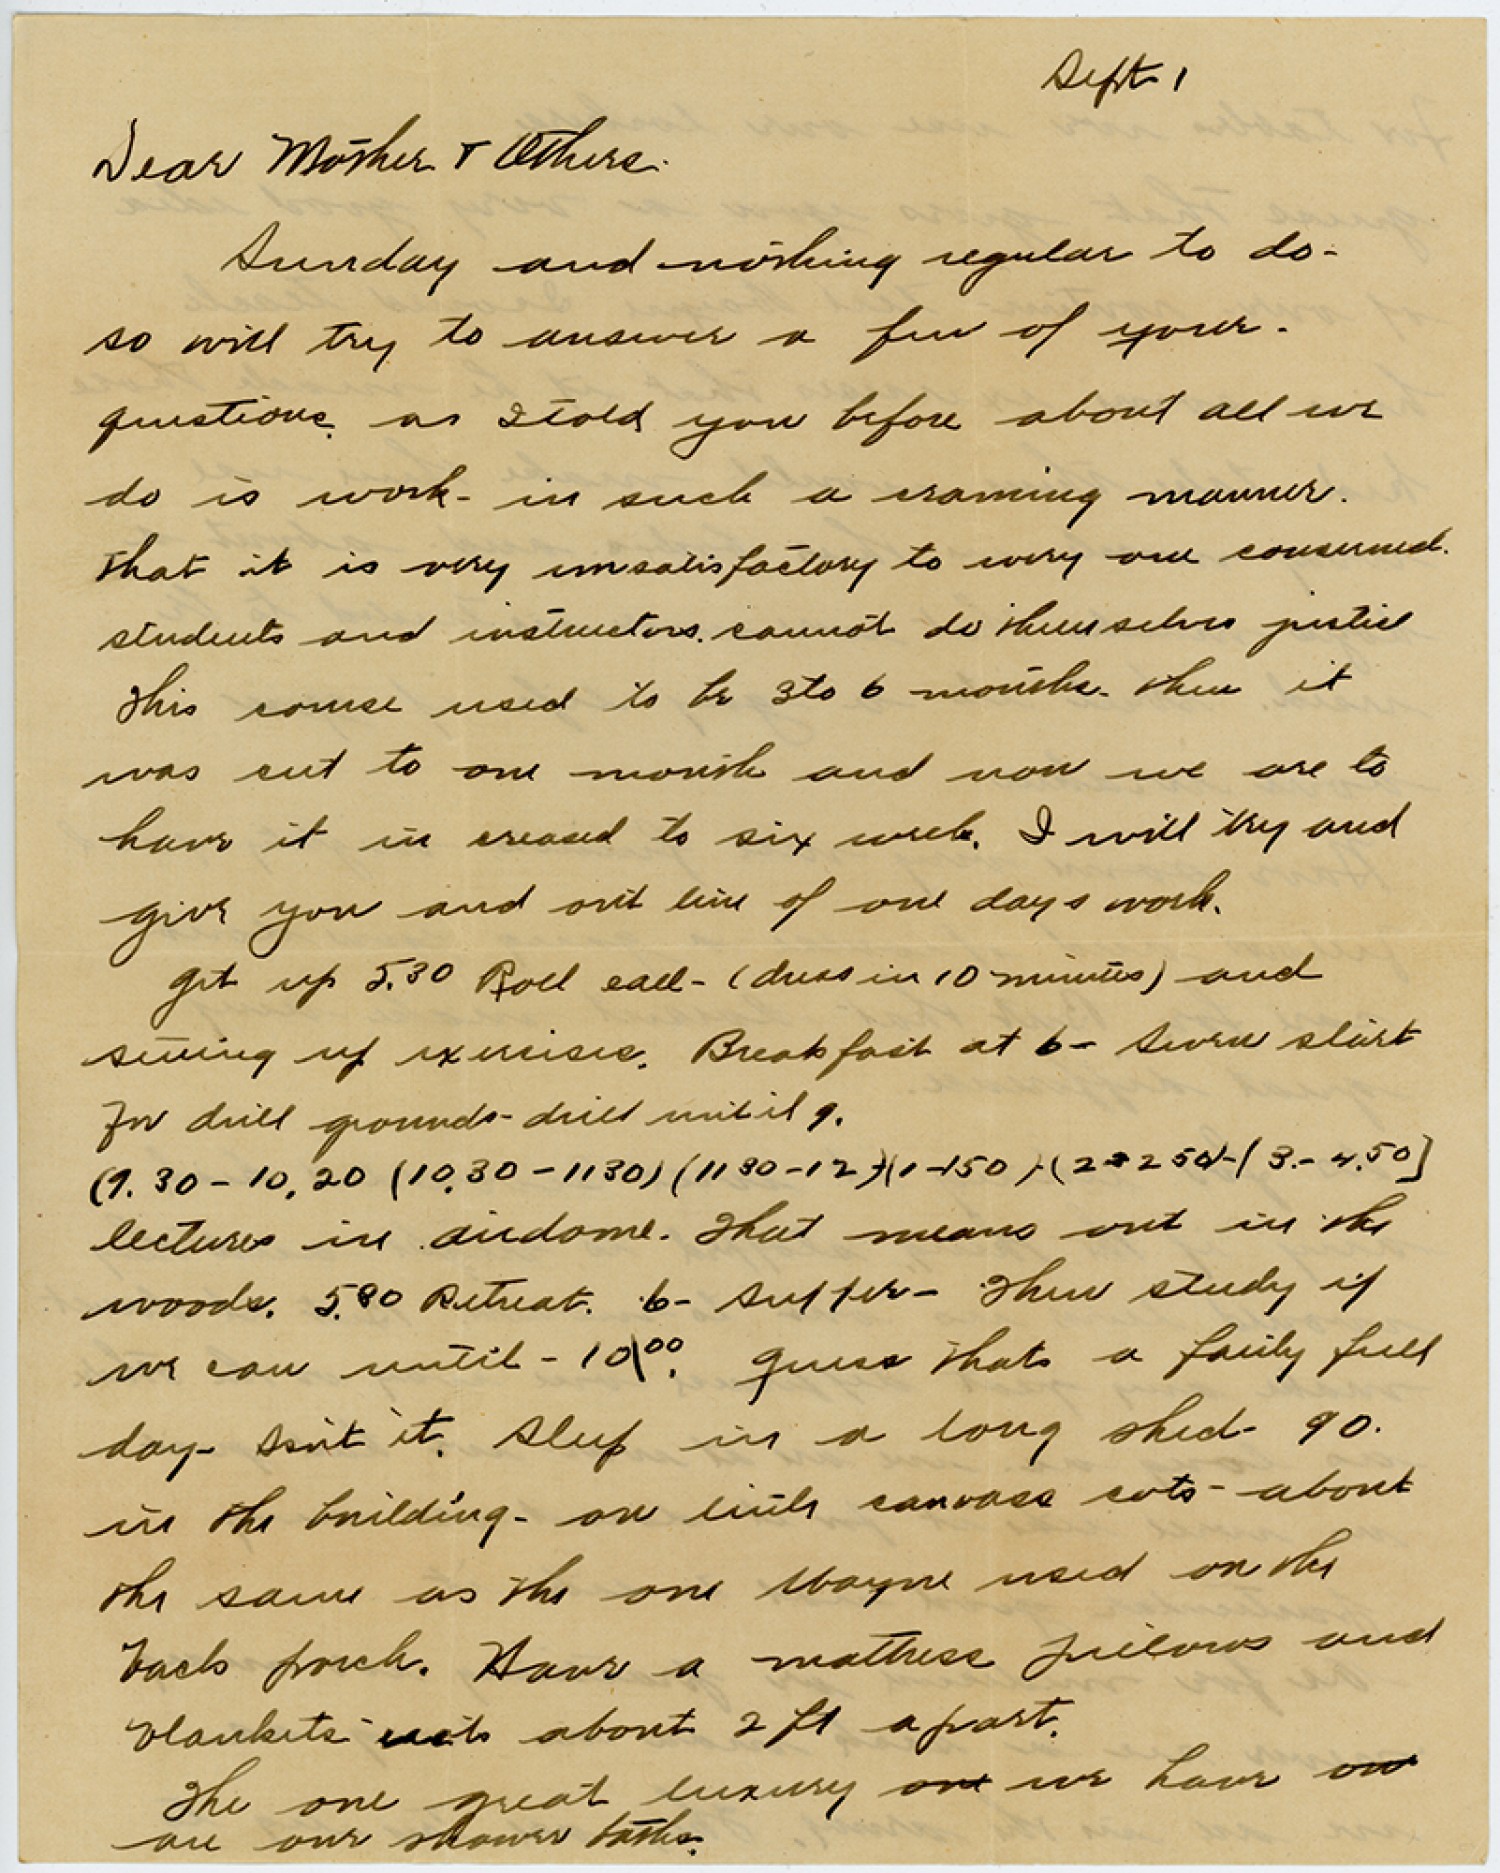 Sept 1
Dear Mother & Others.
Sunday and nothing regular to do-
so will try to answer a few of your-
questions. as I told you before about all we
do is work- in such a craming manner.
that it is very unsatisfactory to every one conserned.
students and instructors. cannot do themselves justice
This course used to be 3 to 6 months. then it
was cut to one month and now we are to
have it in creased to six week. I will try and
give you and out line of one days work.
get up 5.30 Roll call- (dress in 10 minutes) and
setting up exercises. Breakfast at 6- Seven start
for drill grounds- drill until 9.
(9.30 - 10,20 (10,30 - 1130) (1130-12)-(1-150)-(2-250)-(3.-4.50]
lectures in airdome. That means out in the
woods. 5.30 Retreat. 6- Supper- Then study if
we can until - 10.00. guess thats a fairly full
day- isnt it. Sleep in a long shed- 90.
in the building- on little canvass cots- about
the same as the one Wayne used on the
back porch. Have a mattress pillows and
blankets cots about 2 ft apart.
The one great luxury are we have on
are our shower baths.